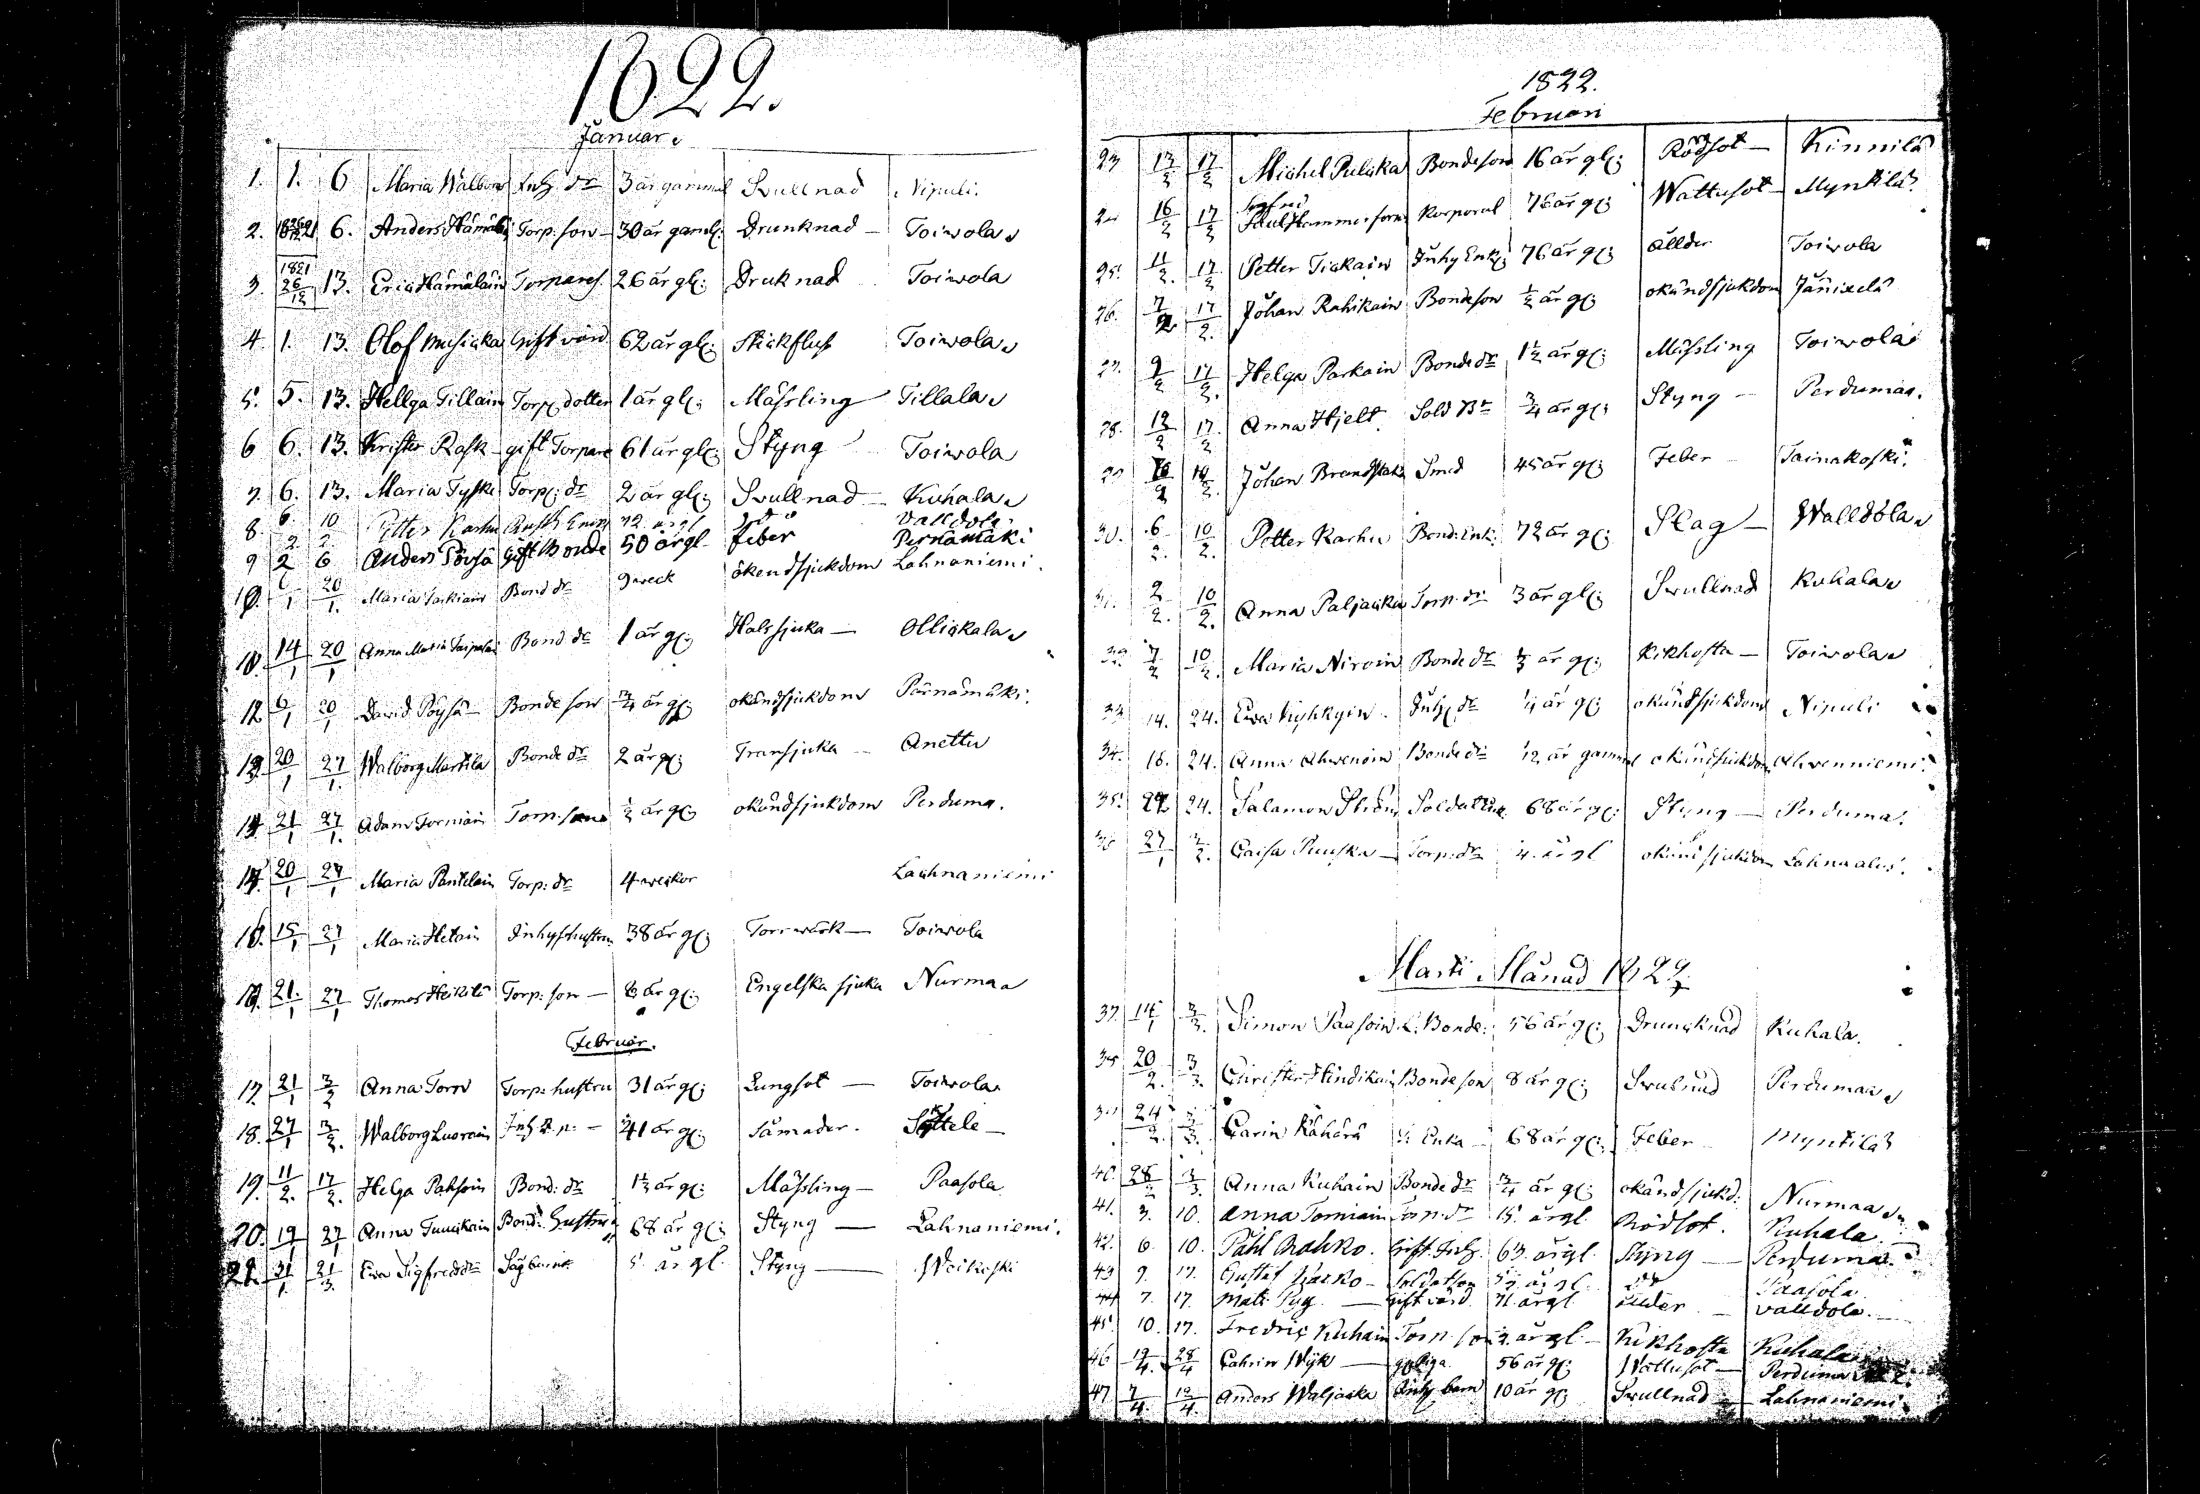 1822.
Januar.
1. 1. 6 Maria Walbor Inh dr 3 år gammal Svullnad Nipuli.
2. 6. Anders Hämäläin Torp: son 30 år gaml: Drunknad Toiwola
3. 1821 26/12 13. Eric Hämäläin Torpares. 26 år gl: Druknad Toiwola
4. 1. 13. Olof Musicka Gift värd 62 år gl: Stickfluss Toiwola
5. 5. 13. Hellga Tillain Torp dotter 1 år gl: Mässling Tillala
6 6. 13. Krister Rask gift Torpare 61 år gl: Styng Toiwola
7. 6. 13. Maria Tyski Torp: dr 2 år gl: Svullnad Kuhala
8. 6/2 10/2 Petter Karhu 72 år gl Valldola
9 2 6 Anders Pöysä Gift Bonde 50 år gl feber Pernämäki
10. 20/1. Maria Bond dr 9 veck ökendsjukdom Lahnaniemi.
14/1 20/1 Anna Maria Taipalin Bond dr 1 år gl: Halssjuka Ollickala
12 6/1 20/1 David Pöysä Bonde son 3/4 år gl: okändsjukdom Pärnämäki.
13. 20/1 27/1. Walborg Marttila Bonde dr 2 år gl: Transjuka Anettu
14. 21/1 27/1. Adam Torniain Torp: son 1/2 år gl: okändsjukdom Perduma.
20/1 27/1 Maria Pantelain Torp: dr 4 weckor Lachnaniemi
16. 15/1 27/1 Maria Hetain Inhyshustru 38 år gl: Torrwärk Toiwola
21/1 27/1 Thomas Heikile Torp: son 6 år gl: Engelska sjuka Nurmaa
Februar.
17. 21/1 3/2 Anna Torn Torp: hustru 31 år gl: Lungsot Toiwola
18. 27/1 3/2. Walborg Luorain 41 år gl:
19. 11/2. 17/2. Helga Paksoin Bond: dr 1½ år gl: Mässling Paasola
20. 19/1 27/1 Anna Tuuckain Bond: hustru 68 år gl: Styng Lahnaniemi.
21. 31/1 21/3. Ewa Sigfredsdr 5 år gl. Styng Weikoski
1822.
Februari
23 13/2 17/2 Michel Pulcka Bondeson 16 år gl: Rödsot Kinnilä
24 16/2 17/2 Hammarson Korporal 76 år gl: Wattusot Myntilä
25. 11/2. 17/2 Petter Tickain Inhy Enk: 76 år gl: ållder Toiwola
26. 7/2 17/2. Johan Rahikain Bondeson 1/2 år gl: okändsjukdom Jänixelä
27. 9/2 17/2. Helga Parkain Bonde dr 1½ år gl: Mässling Toiwola
28. 12/2 17/2 Anna Hjelt Sold Br 3/4 år gl: Styng Perdumaa.
29 Johan Brandstak Smed 45 år gl: Feber Tainakoski.
30. 6/2. 10/2. Petter Karhu Bond: Enk: 72 år gl: Slag Walldola
31. 2/2. 10/2. Anna Paljacka Torp. dr 3 år gl: Svullnad Kuhala
32. 7/2 10/2. Maria Niroin Bonde dr år gl: Kikhosta Toiwola
33. 14. 24. Ewa Kyhkyin Inh: dr 1/4 år gl: okändsjukdom Nipuli
34. 16. 24. Anna Ahwenoin Bonde dr 1/2 år gammal okändsjukdom Ahwenniemi.
35. 22 24. Salamon Ström Soldat 68 år gl: Styng Perduma.
36 27/1 3/2. Caisa Puuska Torp: dr 4. år gl okändsjukdom Lahnaalus.
Marti Månad 1822
37. 14/1 3/3. Simon Paasoin Bonde: 56 år gl: Drungknad Kuhala.
38 20/2. 3/3. Christer Hindikain Bondeson 8 år gl: Svulnad Perdumaa
39 24/2. 3/3. Carin Kähärä Enka 68 år gl: Feber Myntilä
40. 28/2 3/3. Anna Kuhain Bonde dr 3/4 år gl: okändsjukd: Nurmaa
41. 3. 10. Anna Torniain Torp: dr 15. år gl Rödsot. Kuhala.
42. 6. 10. Påhl Mahko. Gift. Inh. 63. år gl. Styng Perduma.
43 9. 17. Gustaf Soldatson år gl. Paasola.
44 7. 17. Mats Pug Gift värd 71 år gl ållder Valldola
45. 10. 17. Fredric Kuhain Torp. son 2. år gl Kikhosta Kuhala
46 19/4. 28/4 Cahrin Wijk Piga 56 år gl: Wattusot Perduma
47 7/4. 12/4. Anders Waljacka Inhy barn 10 år gl: Svullnad Lahnaniemi